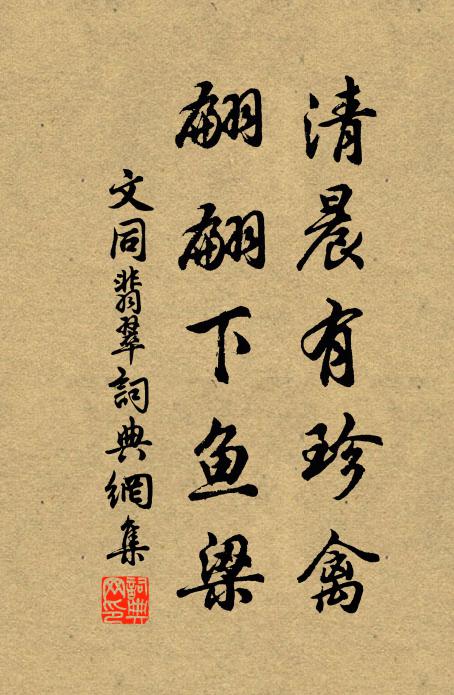 清晨有珍禽
翩翩下鱼梁
文同翡翠詞典網集
詞典网印